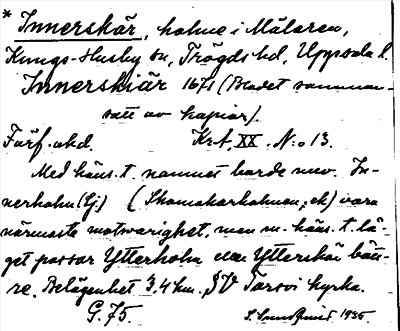 * Innerskär, holme i Mälaren,
Kungs-Husby sn, Trögds hd, Uppsala l.
Innerskiär 1671 (Bladet samman-
satt av kopior).
Förf. okd. Krt. XX. N:o 13.
Med häns. t. namnet borde nuv. In-
nerholm (Ej.) (Skomakarholmen, ek) vara
närmaste motsvarighet, men m. häns. t. lä-
get passar Ytterholm Ytterskär bätt-
re. Belägenhet 3,4 km. SV Torsvi kyrka.
G. 75. S. Sundquist 1935.